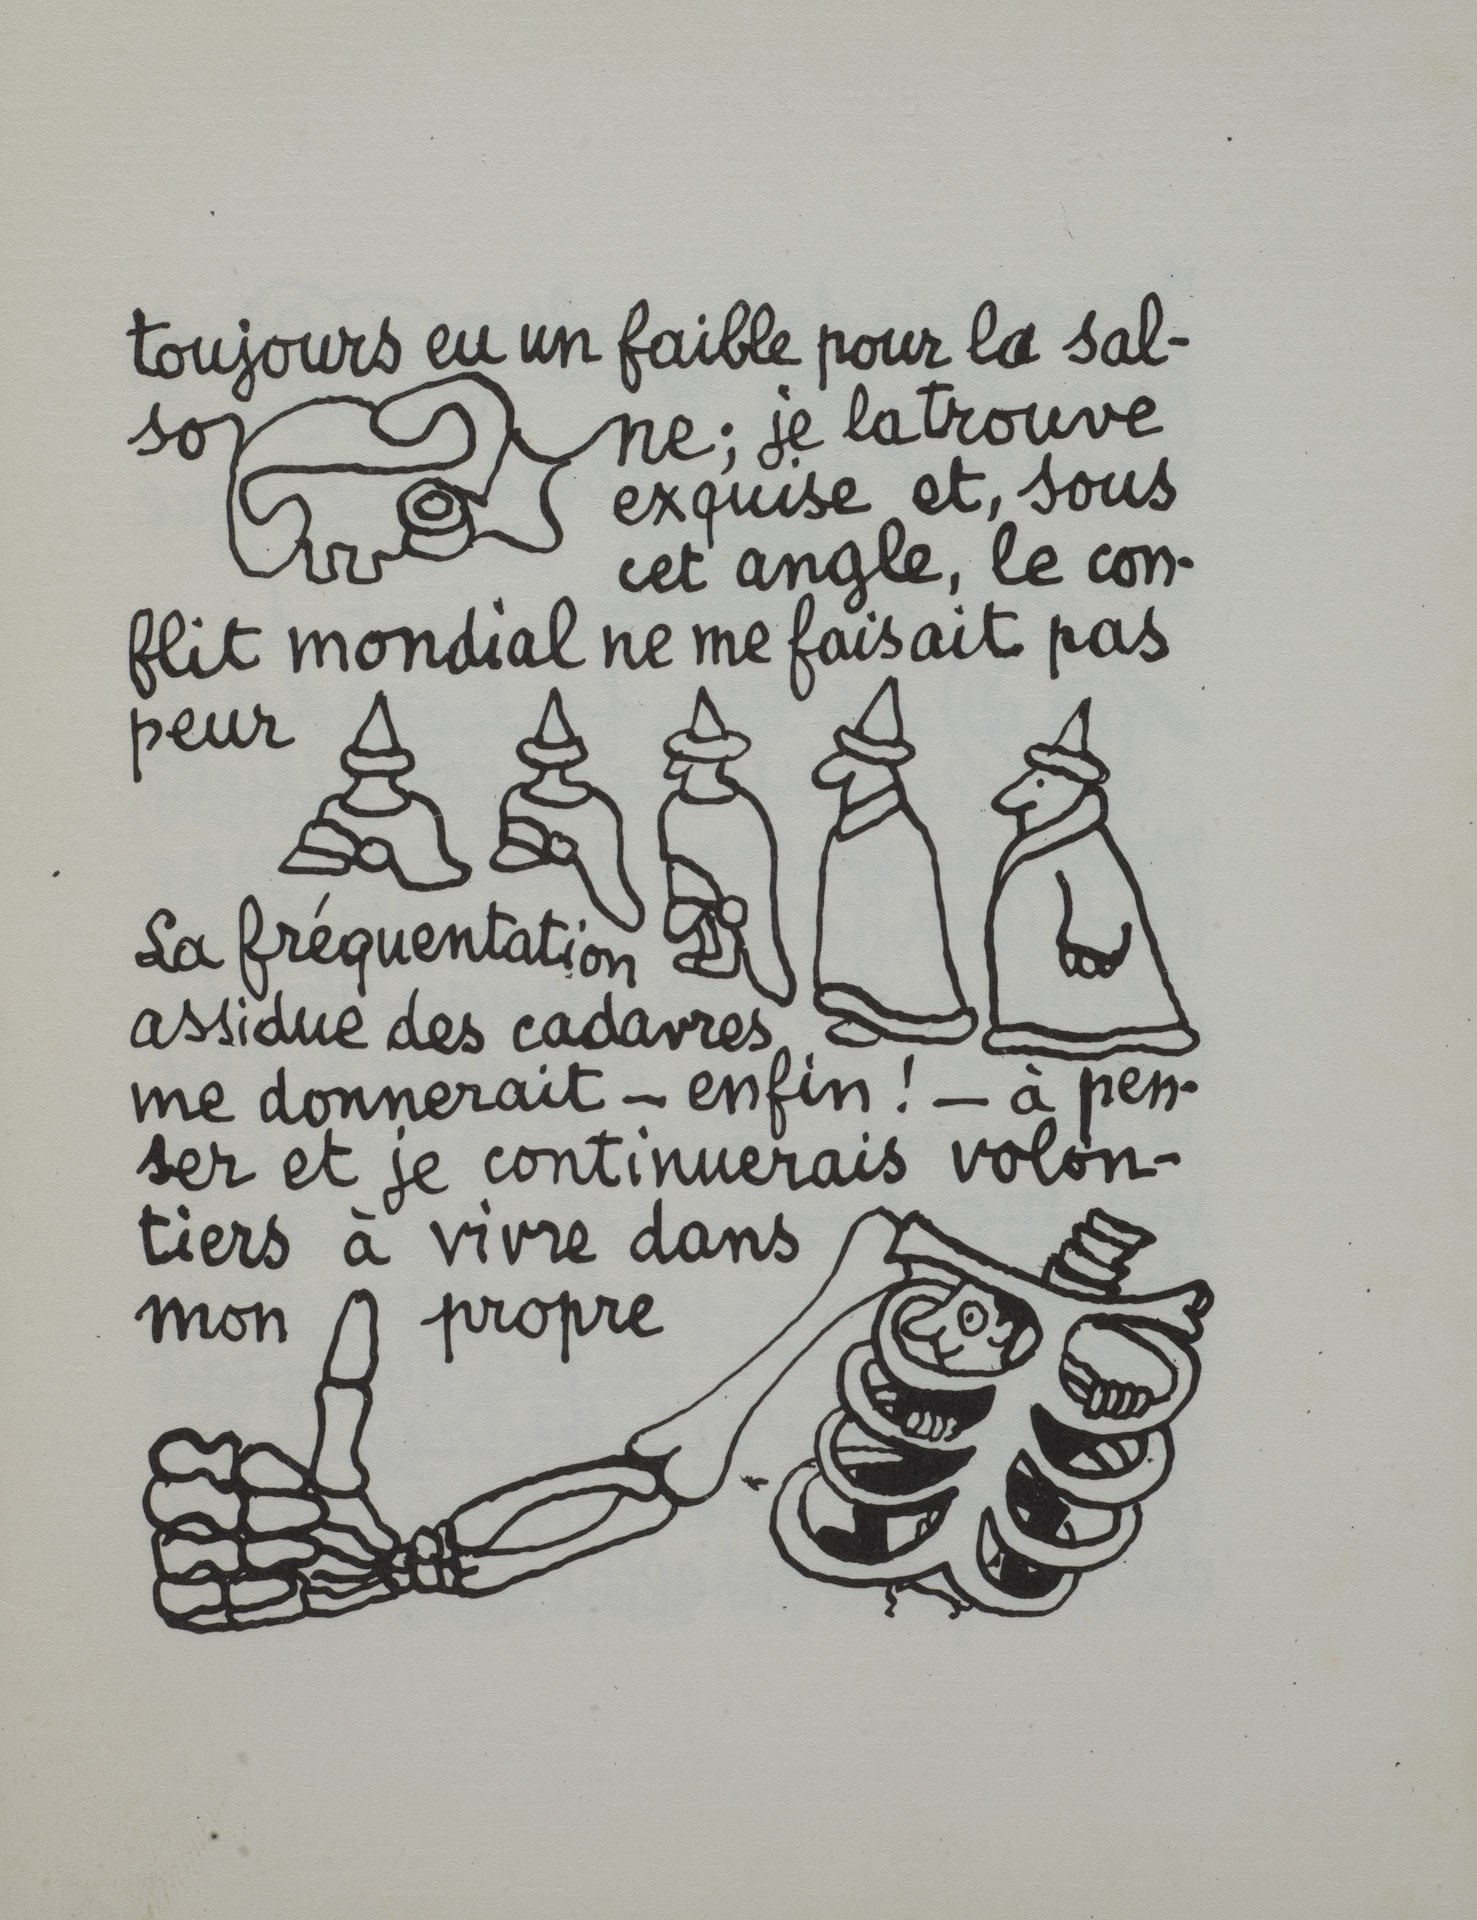 toujours eu un faible pour la sal-
so ne; je la trouve
exquise et, sous
cet angle, le con-
flit mondial ne me faisait pas
peur
La fréquentation
assidue des cadavres
me donnerait – enfin ! – à pen-
ser et je continuerais volon-
tiers à vivre dans
mon propre